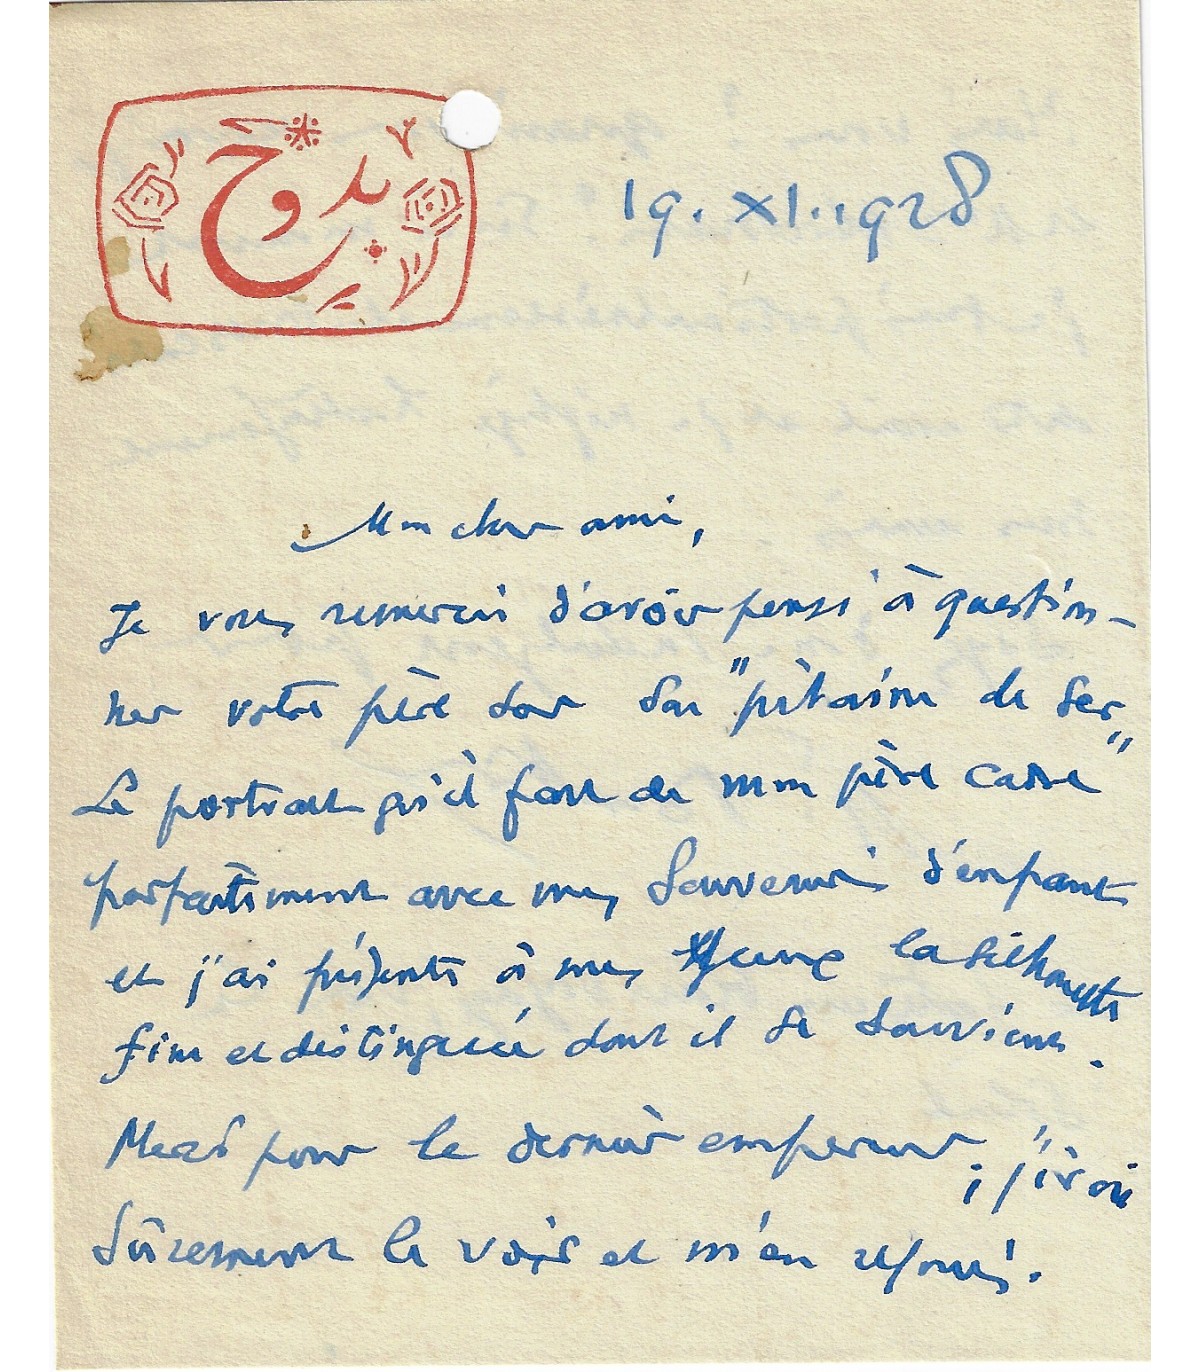 بدوح
19. XI. 1928
Mon cher ami,
Je vous remercie d'avoir pensé à question-
ner votre père sur son "pitaine de ser"
Le portrait qu'il fait de mon père cadre
parfaitement avec mes souvenirs d'enfant
et j'ai présente à mes yeux la silhouette
fine et distinguée dont il se souvient.
Merci pour le dernier empereur ; j'irai
sûrement le voir et m'en réjouis.